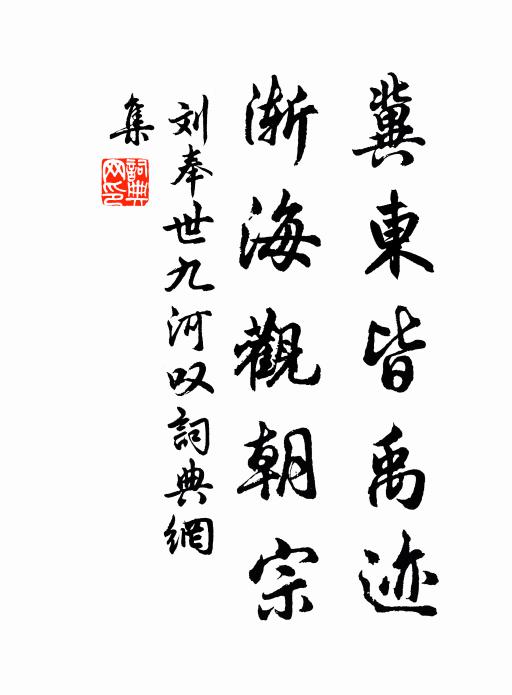 冀東皆禹迹
渐海觀朝宗
刘奉世九河叹詞典網
集
詞典網印